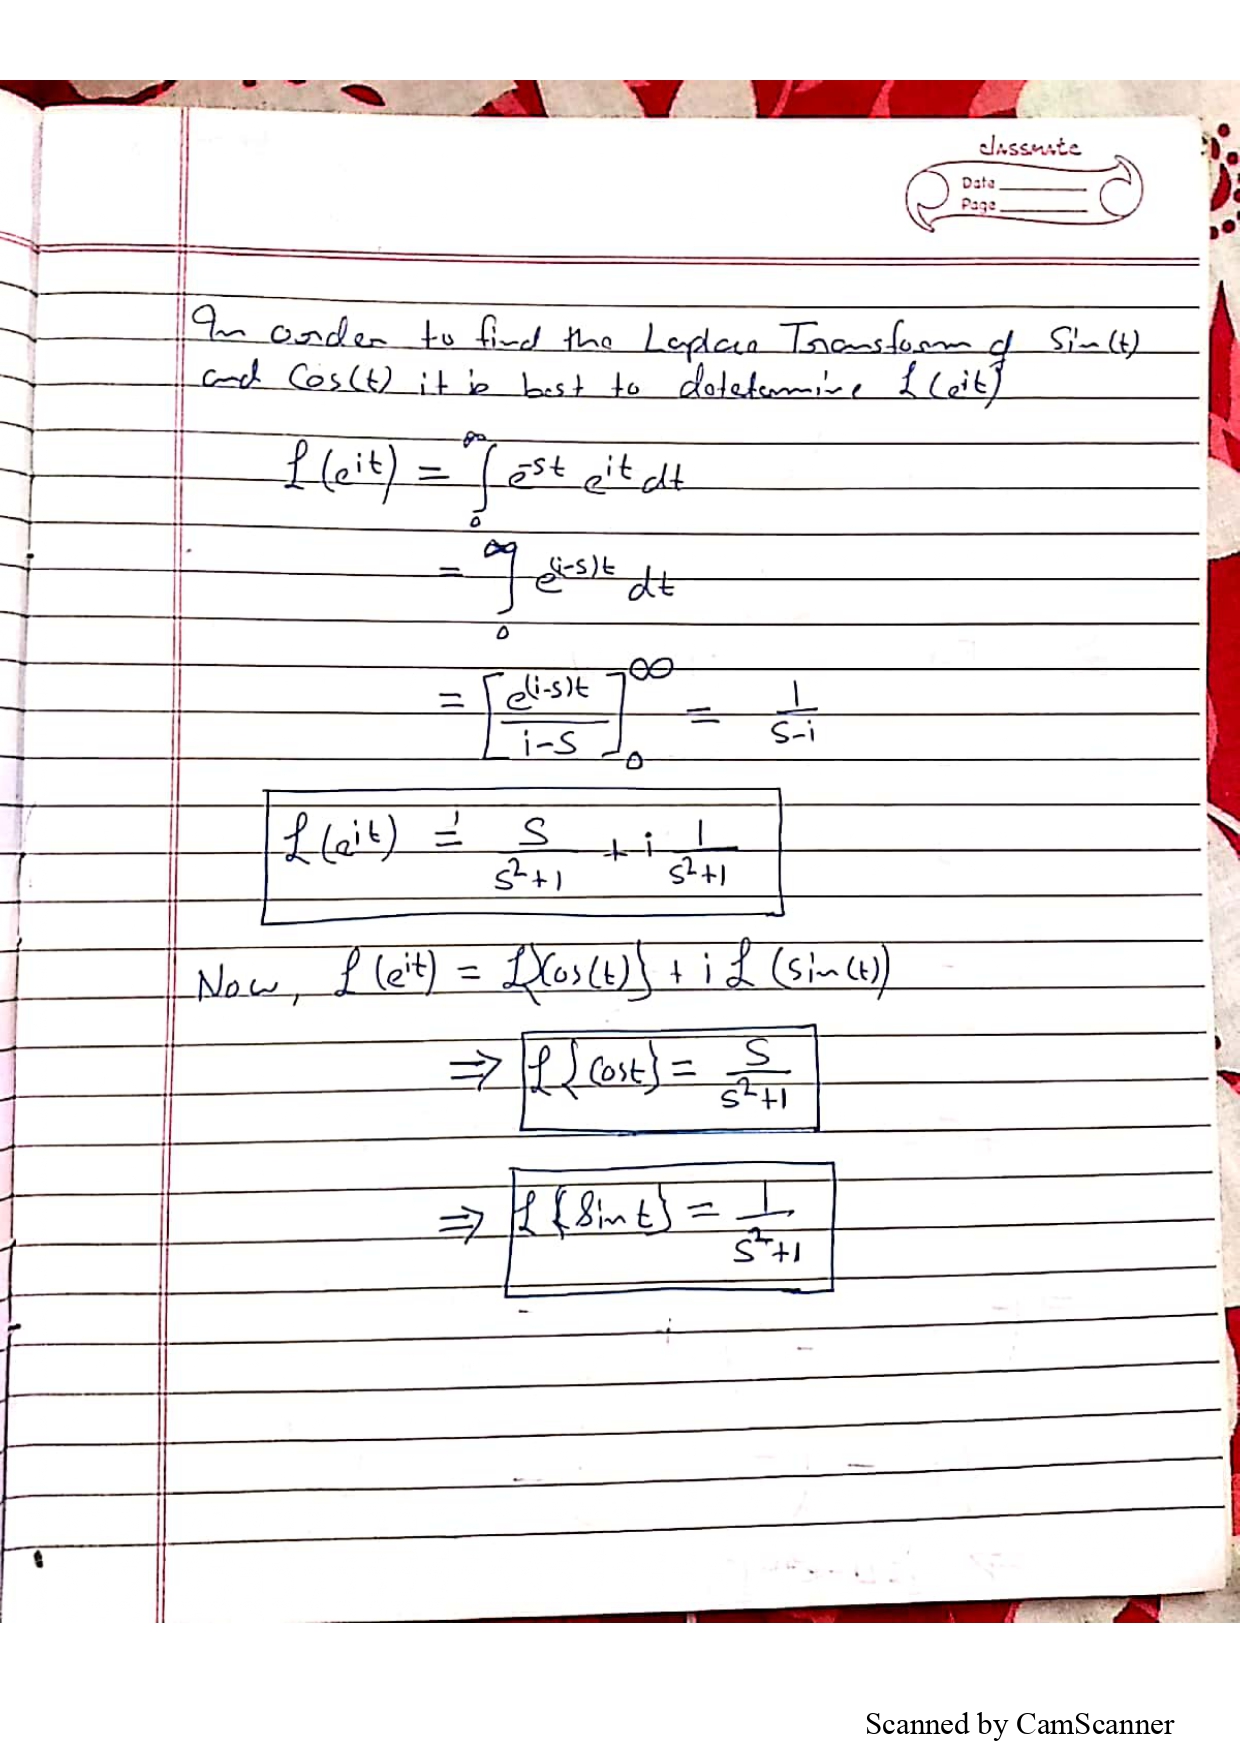 classmate
Date
Page
In order to find the Laplace Transform of Sin(t)
and Cos(t) it is best to dotetermine ℒ(eit)
ℒ(e^it) = ∫₀^∞ e^-st e^it dt
= ∫₀^∞ e^(i-s)t dt
= [e^(i-s)t / i-s]₀^∞ = 1/s-i
ℒ(e^it) = s/s²+1 + i 1/s²+1
Now, ℒ(e^it) = ℒ{Cos(t)} + i ℒ(sin(t))
⇒ ℒ{Cost} = s/s²+1
⇒ ℒ{Sin t} = 1/s²+1
Scanned by CamScanner